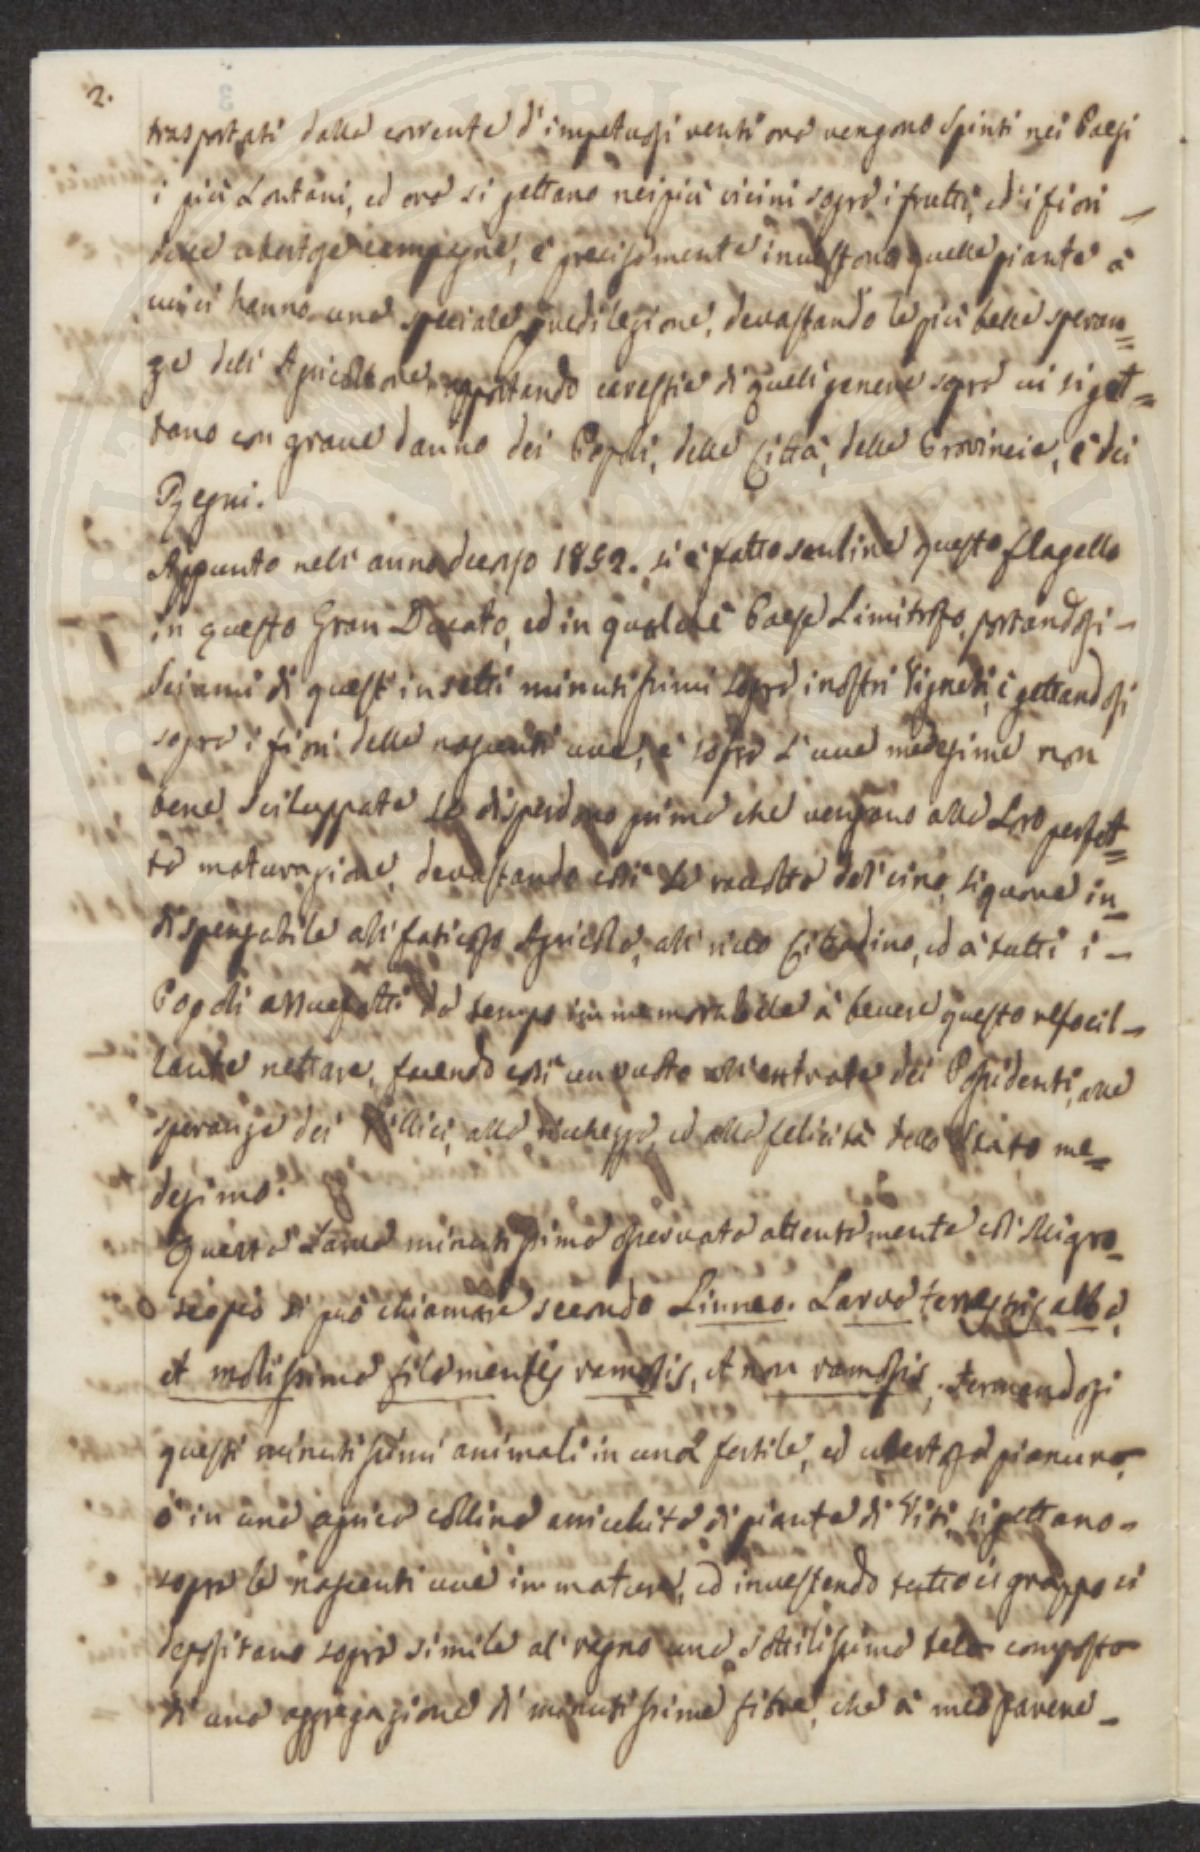 2.
trasportati dalla corrente d'impetuosi venti ora vengono spinti nei Paesi
i più Lontani, ed ora si gettano nei più vicini sopra i frutti, ed i fiori –
delle ubertose campagne, è precisamente investono quelle piante à
cui ci hanno una speciale predilezione, devastando le più belle speran=
ze dell'Agricoltore, apportando carestia di quelli generi sopra cui si get=
tano con grave danno dei Popoli, delle Città, delle Provincie, è dei
Regni.
Appunto nell'anno decorso 1852. si è fatto sentire questo flagello
in questo Gran Ducato, ed in qualche Paese Limitrofo, portandosi –
Sciami di questi insetti minutissimi sopra i nostri Vigneti, è gettandosi
sopra i fiori delle nascenti uve, è sopra L'uve medesime non
bene Sviluppate Le disperdono prima che vengano alla Loro perfet=
ta maturazione, devastando così La raccolta del vino, liquore in_
dispensabile all'faticoso Agricola, all'ricco Cittadino, ed à tutti i –
Popoli assuefatti da tempo immemorabile à bevere questo refocil–
lante nettare, facendo così un vuoto all'entrate dei Possidenti, alle
speranze dei Villici, alla ricchezza, ed alla felicità dello Stato me=
desimo.
Questa Larva minutissima osservata attentamente col Migro_
scopio si può chiamare secondo Linneo. Larva terrestris alba,
et mollissima filamentis ramosis, et non ramosis, fermandosi
questi minutissimi animali in una fertile, ed ubertosa pianura,
ò in una aprica collina arricchita di piante di Viti, si gettano –
sopra le nascenti uve immature, ed investendo tutto il grappo ci
depositano sopra simile al ragno una sottilissima tela composta
di una aggregazione di minutissime fibre, che à mio parere –